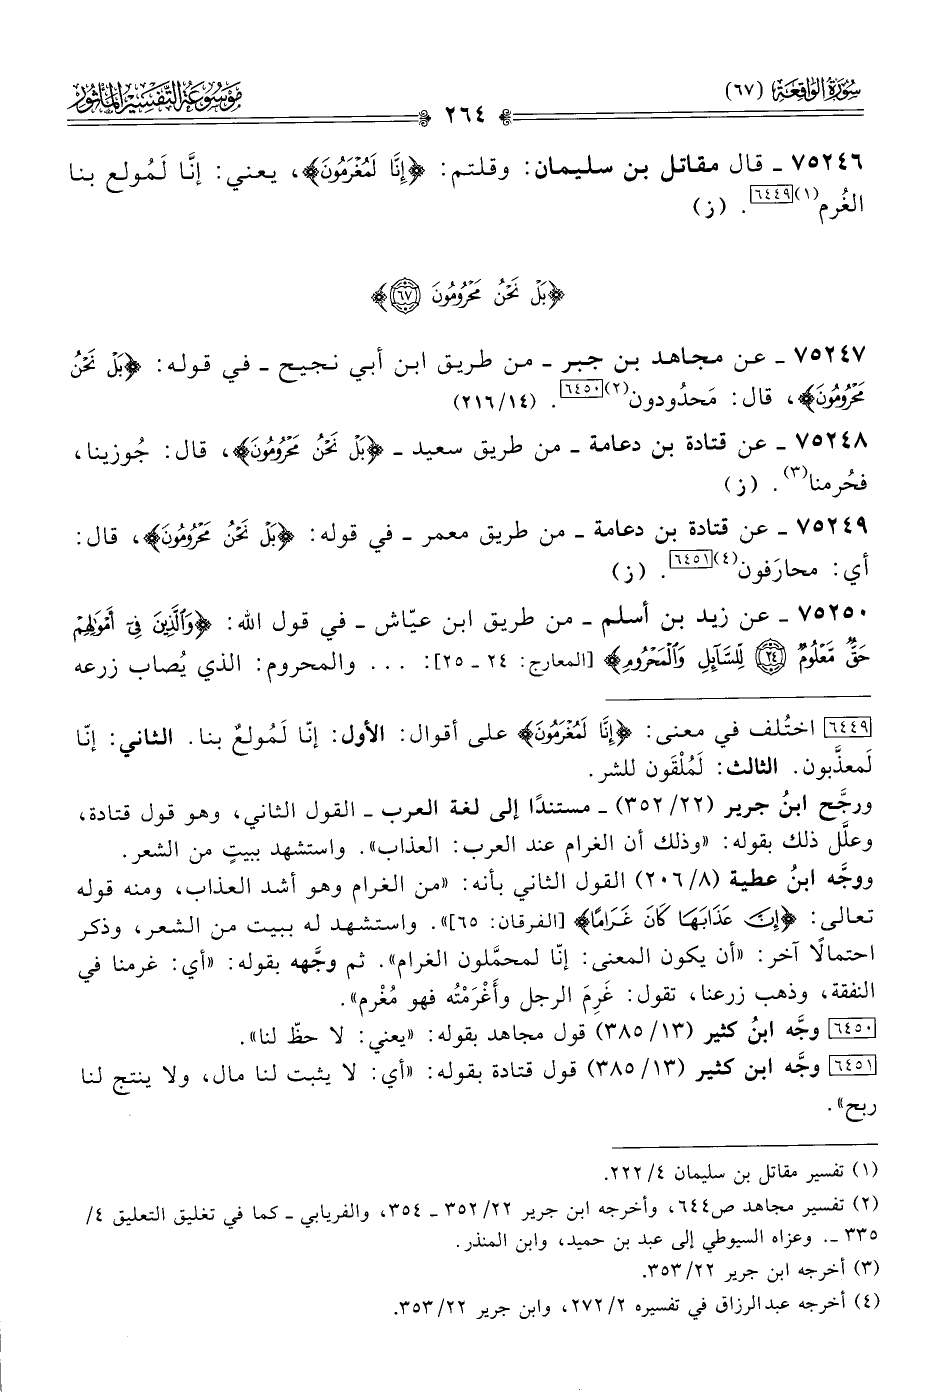 سُورَةُ الوَاقِعَة (٦٧)
٢٦٤
مَوْسُوعَة التَّفْسِيْر المَأْثُور
٧٥٢٤٦ ـ قال مقاتل بن سليمان: وقلتم: ﴿إِنَّا لَمُغْرَمُونَ﴾، يعني: إنَّا لَمُولع بنا
الغُرم(١)[٦٤٤٩]. (ز)
﴿بَلْ نَحْنُ مَحْرُومُونَ ٦٧﴾
٧٥٢٤٧ ـ عن مجاهد بن جبر ـ من طريق ابن أبي نجيح ـ في قوله: ﴿بَلْ نَحْنُ
مَحْرُومُونَ﴾، قال: مَحدُودون(٢)[٦٤٥٠]. (٢١٦/١٤)
٧٥٢٤٨ ـ عن قتادة بن دعامة ـ من طريق سعيد ـ ﴿بَلْ نَحْنُ مَحْرُومُونَ﴾، قال: جُوزينا،
فحُرمنا(٣). (ز)
٧٥٢٤٩ ـ عن قتادة بن دعامة ـ من طريق معمر ـ في قوله: ﴿بَلْ نَحْنُ مَحْرُومُونَ﴾، قال:
أي: محارَفون(٤)[٦٤٥١]. (ز)
٧٥٢٥٠ ـ عن زيد بن أسلم ـ من طريق ابن عيّاش ـ في قول الله: ﴿وَالَّذِينَ فِي أَمْوَالِهِمْ
حَقٌّ مَعْلُومٌ ٢٤ لِلسَّائِلِ وَالْمَحْرُومِ﴾ [المعارج: ٢٤ ـ ٢٥]: ... والمحروم: الذي يُصاب زرعه
[٦٤٤٩] اختُلف في معنى: ﴿إِنَّا لَمُغْرَمُونَ﴾ على أقوال: الأول: إنّا لَمُولعٌ بنا. الثاني: إنّا
لَمعذَّبون. الثالث: لَمُلْقَون للشر.
ورجَّح ابنُ جرير (٣٥٢/٢٢) ـ مستندًا إلى لغة العرب ـ القول الثاني، وهو قول قتادة،
وعلَّل ذلك بقوله: «وذلك أن الغرام عند العرب: العذاب». واستشهد ببيتٍ من الشعر.
ووجَّه ابنُ عطية (٢٠٦/٨) القول الثاني بأنه: «من الغرام وهو أشد العذاب، ومنه قوله
تعالى: ﴿إِنَّ عَذَابَهَا كَانَ غَرَامًا﴾ [الفرقان: ٦٥]». واستشهد له ببيت من الشعر، وذكر
احتمالًا آخر: «أن يكون المعنى: إنّا لمحمَّلون الغرام». ثم وجَّهه بقوله: «أي: غرمنا في
النفقة، وذهب زرعنا، تقول: غَرِمَ الرجل وأَغْرَمْتُه فهو مُغْرم».
[٦٤٥٠] وجَّه ابنُ كثير (٣٨٥/١٣) قول مجاهد بقوله: «يعني: لا حظّ لنا».
[٦٤٥١] وجَّه ابن كثير (٣٨٥/١٣) قول قتادة بقوله: «أي: لا يثبت لنا مال، ولا ينتج لنا
ربح».
(١) تفسير مقاتل بن سليمان ٢٢٢/٤.
(٢) تفسير مجاهد ص٦٤٤، وأخرجه ابن جرير ٣٥٢/٢٢ ـ ٣٥٤، والفريابي ـ كما في تغليق التعليق ٤/
٣٣٥ ـ. وعزاه السيوطي إلى عبد بن حميد، وابن المنذر.
(٣) أخرجه ابن جرير ٣٥٣/٢٢.
(٤) أخرجه عبدالرزاق في تفسيره ٢٧٢/٢، وابن جرير ٣٥٣/٢٢.